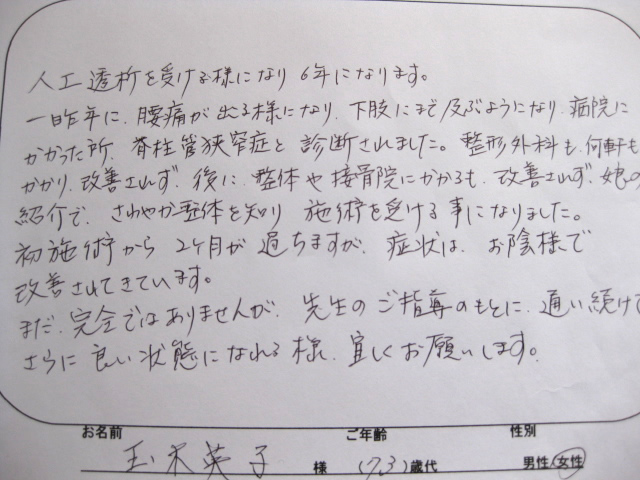 人工透析を受ける様になり 6年になります。
一昨年に、腰痛が出る様になり、下肢にまで及ぶようになり、病院に
かかった所、脊柱管狭窄症と診断されました。整形外科も、何軒も
かかり、改善されず、後に、整体や接骨院にかかるも、改善されず、娘の
紹介で、さわやか整体を知り 施術を受ける事になりました。
初施術から 2ヶ月が過ちますが、症状は、お陰様で
改善されてきています。
まだ、完全ではありませんが、先生のご指導のもとに、通い続けて
さらに良い状態になれる様、宜しくお願いします。
お名前 ご年齢 性別
玉木英子 様 (73)歳代 男性/女性